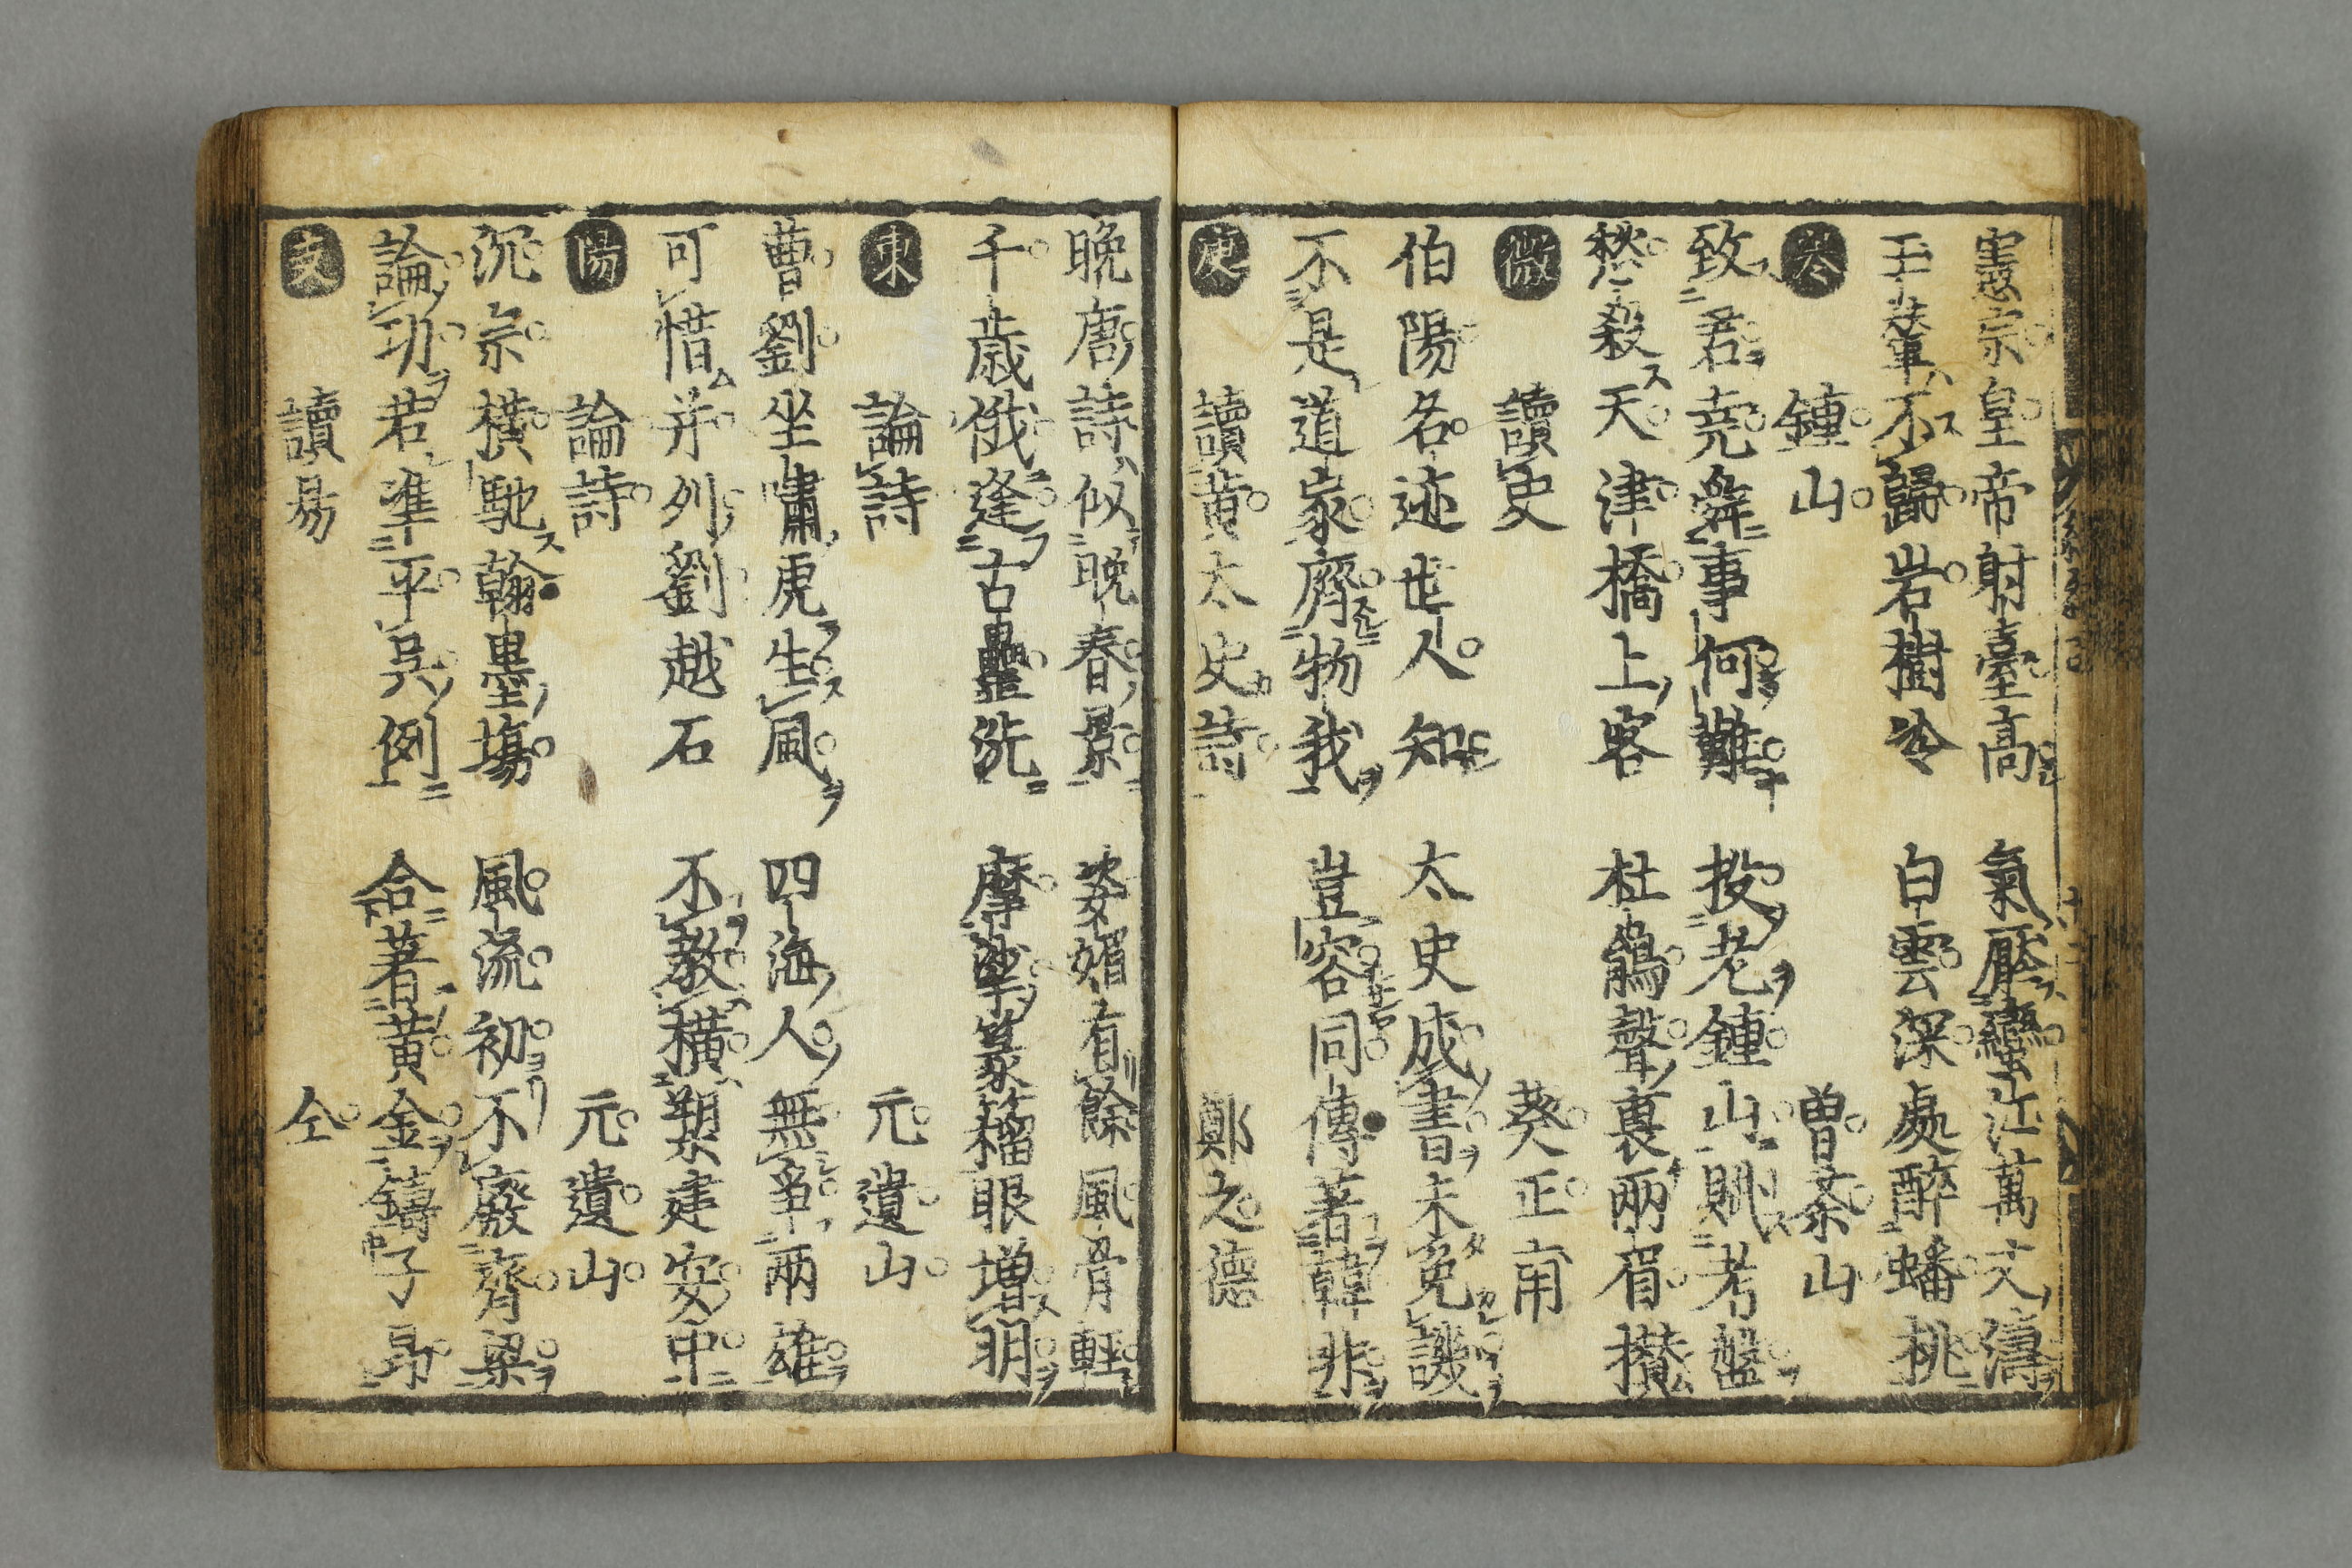 憲宗皇帝射臺高 氣壓蠻江萬丈濤
玉輦不歸岩樹冷 白雲深處醉蟠桃
鍾山 曽茶山
致君堯舜事何難 投老鍾山賦考盤
愁殺天津橋上客 杜鵑聲裏兩眉攅
微 讀史 葵正甫
伯陽名迹世人知 太史成書未免譏
不是道家齊物我 豈容同傳著韓非
庚 讀黄太史詩 鄭之德
晩唐詩似晩春景 姿媚有餘風骨輕
千歳俄逢古罍洗 摩挲篆籀眼増明
東 論詩 元遺山
曹劉坐嘯虎生風 四海人無爭兩雄
可惜并列劉越石 不教横槊建安中
陽 論詩 元遺山
沉宗横馳翰墨塲 風流初不廢齊梁
論功若準平吳例 合著黄金鑄子昂
支 讀易 仝